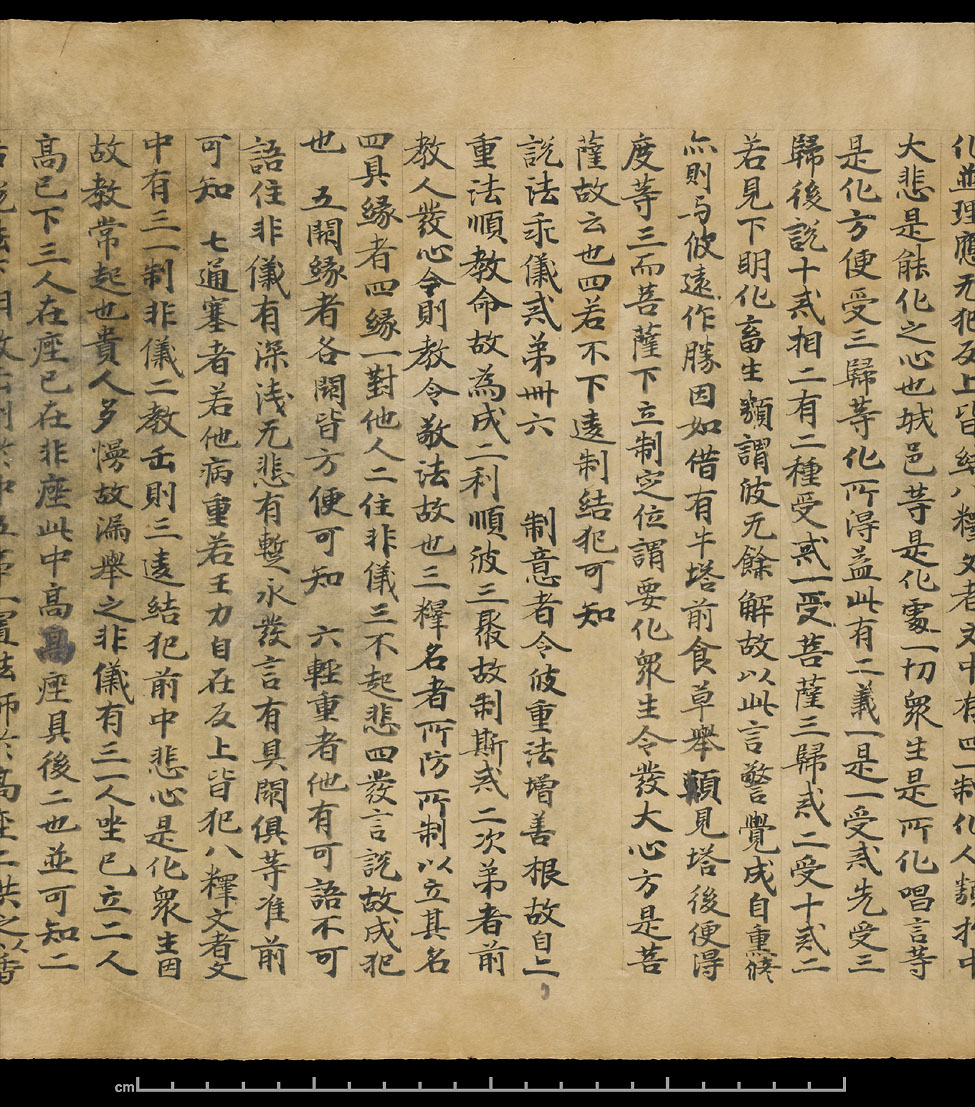 化並理應无犯及上皆結八釋文者文中有四一制化人類於中
大悲是能化之心也城邑等是化處一切衆生是所化唱言等
是化方便受三歸等化所得益此有二義一是一受戒先受三
歸後説十貳相二有二種受戒一受菩薩三歸貳二受十貳二
若見下明化畜生類謂彼无餘解故以此言警覺成自熏修
尒則与彼遠作勝因如借有牛塔前食草舉頭見塔後便得
度等三而菩薩下立制定位謂要化衆生令發大心方是菩
薩故云也四若不下違制結犯可知
説法乖儀貳弟卌六 制意者令彼重法增善根故自上
重法順教命故為成二利順彼三聚故制斯貳二次弟者前
教人發心令則教令敬法故也三釋名者所防所制以立其名
四具緣者四緣一對他人二住非儀三不起悲四發言説故成犯
也 五闕緣者各闕皆方便可知 六輕重者他有可語不可
語住非儀有深淺无悲有蹔永發言有具闕俱等准前
可知 七通塞者若他病重若王力自在反上皆犯八釋文者文
中有三一制非儀二教缶則三違結犯前中悲心是化衆生因
故教常起也貴人多慢故漏舉之非儀有三一人坐已立二人
高已下三人在座已在非座此中高座具後二也並可知二